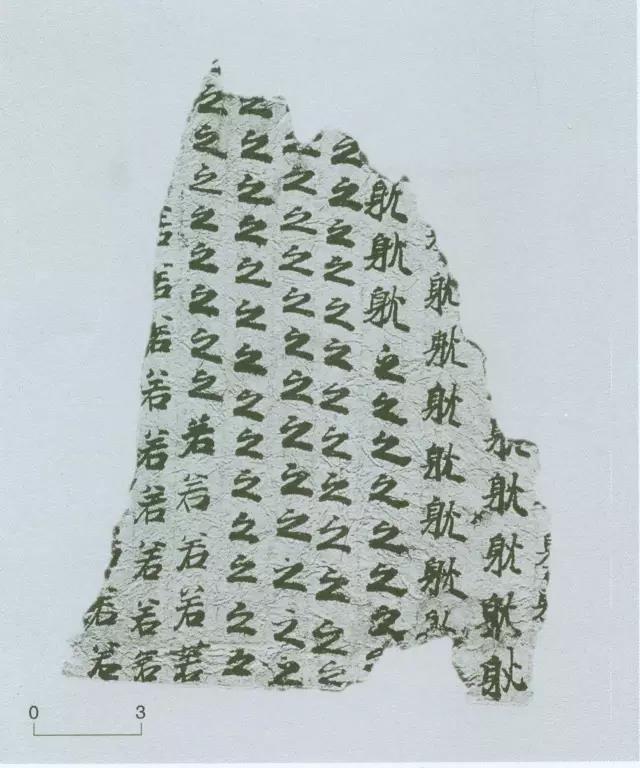 躭躭躭躭
躭躭躭躭躭躭
躭躭躭之之之之之之之
之之之之之之之之之之之之之
之之之之之之之之之之之之
之之之之之之之之之之之之之之
之之之之之之之之若若若若若
若若若若若若若
若若
0 3